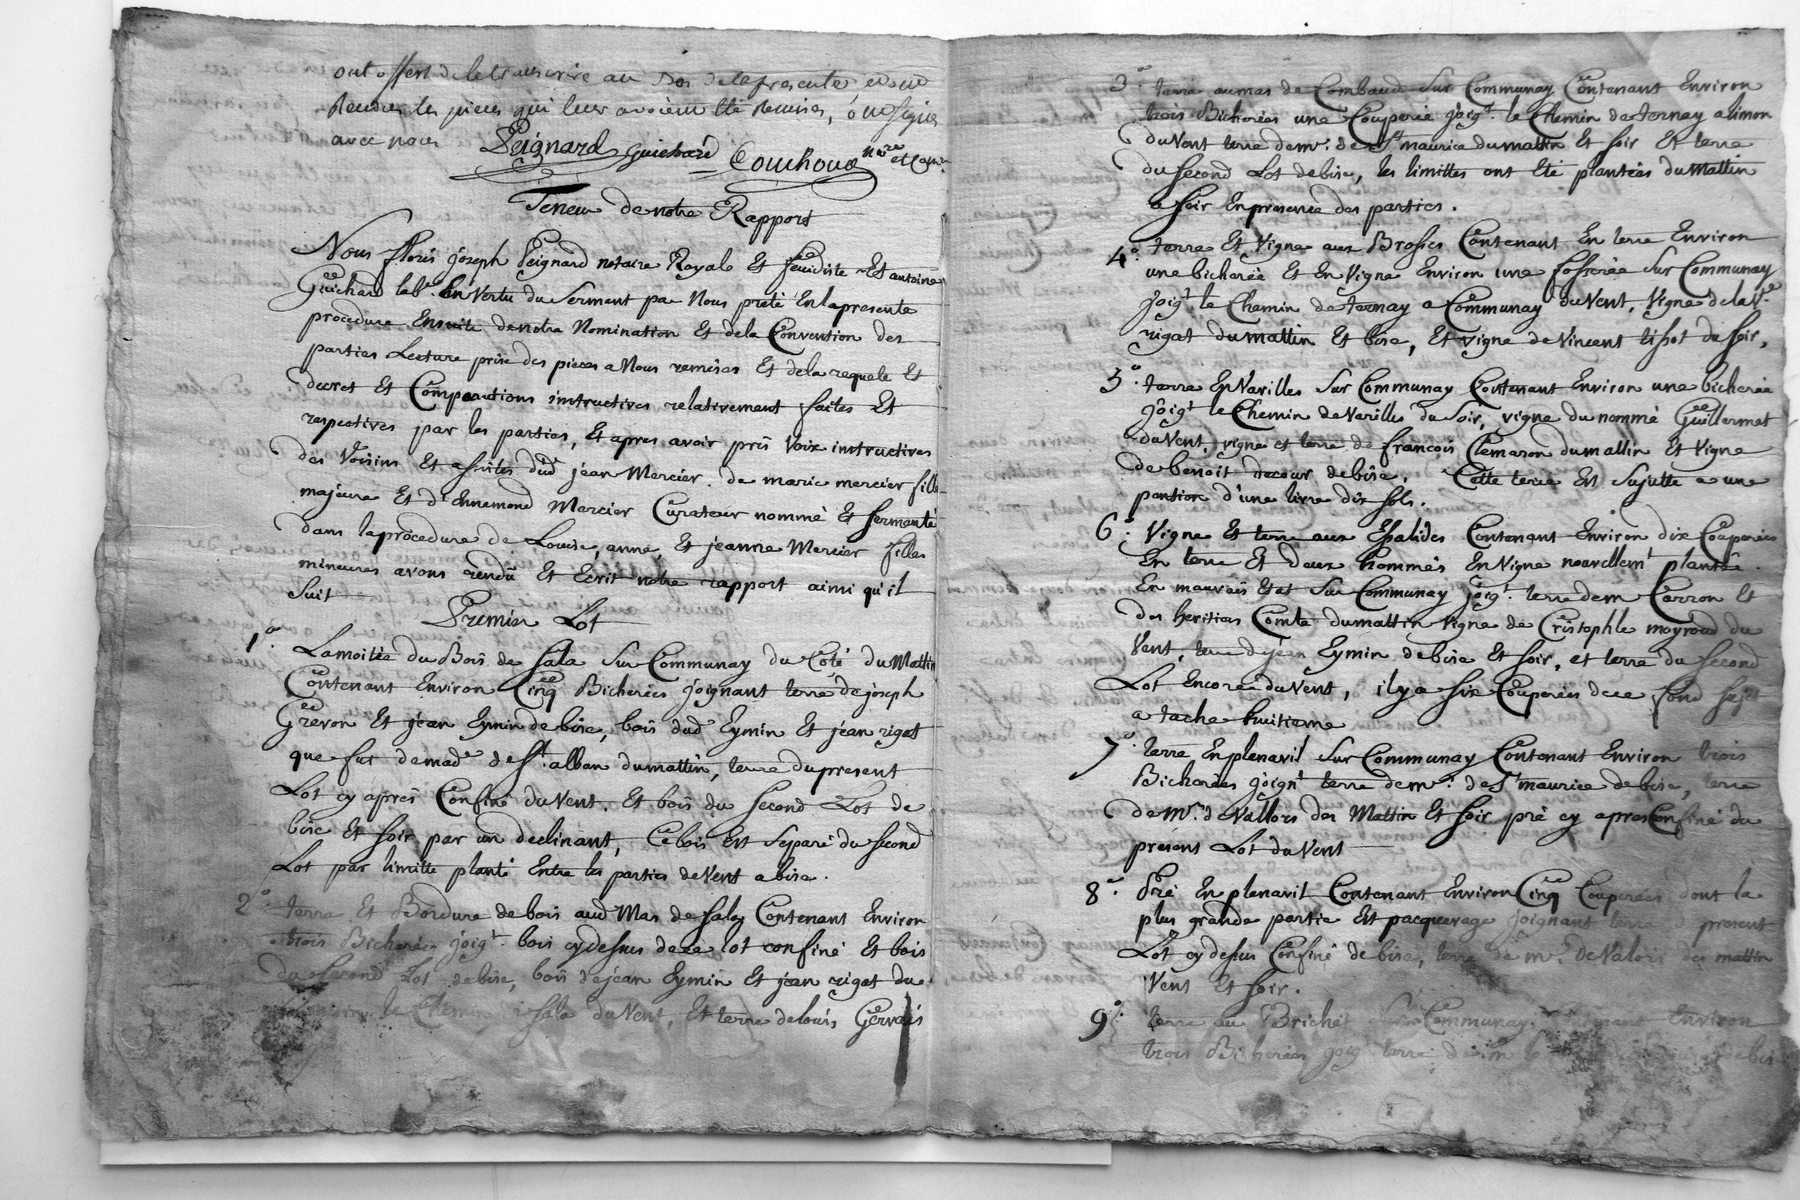 ont offert de le transcrire au dos de la presente, et ont
Rendus les pieces qui leur avoient été Remises, et ont signé
avec nous Peignard Guichard Couchoud n.re et Com.re
Teneur de notre Rapport
Nous floris joseph Peignard notaire Royale Et feudiste Et antoine
Guichard lab.r En Vertu du Serment par Nous prete En la presente
procedure Ensuite de notre Nomination Et de la Convention des
parties Lecture prise des pieces a Nous remises Et de la requete Et
decret Et Comparutions instructives relativement faites Et
respectives par les parties, Et apres avoir pris Voix instructives
des Voisins Et assistes dud. jean Mercier. de marie mercier fille
majeure Et d'Ennemond Mercier Curateur nommé Et sermenté
dans la procedure de Louise, anne, Et jeanne Mercier filles
mineures avons rendû Et Ecrit notre rapport ainsi qu'il
Suit
Premier Lot
1.° La moitée du Bois de Sala Sur Communay du Coté du Mattin
Contenant Environ Cinq Bicherées joignant terre de joseph
Grevon Et jean Eymin de bise, bois dud. Eymin Et jean rigat
que fut de mad.e de S.t alban du mattin, terre du present
Lot cy après Confiné du Vent. Et bois du Second Lot de
bise Et Soir par un declinant, Ce bois Est Separé du Second
Lot par limitte planté Entre les parties de Vent a bise.
2.° terre Et Bordure de bois aud. Mas de Sala Contenant Environ
trois Bicherées joig.t bois cy dessus de ce lot confiné Et bois
du Second Lot de bise, bois de jean Eymin Et jean rigat du
le Chemin de Sala du Vent, Et terre de louis Gervais
3.° terre au mas de Combaud Sur Communay Contenant Environ
trois Bicherées une Couperée joig.t le Chemin de ternay a limon
du Vent terre de m.r de S.t maurice du mattin Et Soir Et terre
du Second Lot de bise, les limittes ont Eté plantées du Mattin
a Soir En presence des parties.
4.° terre Et Vigne aux Brosses Contenant En terre Environ
une bicherée Et En Vigne Environ une fosserée Sur Communay
joig.t le Chemin de ternay a Communay du Vent, Vigne de la V.e
rigat du mattin Et bise, Et vigne de Vincent tissot du Soir,
5.° terre En Varilles Sur Communay Contenant Environ une bicherée
joig.t le Chemin de Varilles du Soir, vigne du nommé Guillermet
du Vent, vigne et terre de francois Clemaron du mattin Et Vigne
de benoit decour de bise. Cette terre Est Sujette a une
pention d'une livre dix Sols.
6.° Vigne Et terre aux Espalides Contenant Environ dix Couperées
En terre Et deux hommes En Vigne nouvellem.t plantée
En mauvais Etat Sur Communay joig.t terre de m. Carron Et
des heritiers Comte du mattin Vigne de Cristophle moyroud du
Vent, terre de jean Eymin de bise Et Soir, et terre du Second
Lot Encore du Vent, il y a Six Couperées de ce fond Sujet
a tache huitieme
7.° terre En planavil Sur Communay Contenant Environ trois
Bicherées joig.t terre de m.r de S.t maurice de bise, terre
de m.r de Vallors des Mattin Et Soir pré cy apres Confiné du
présent Lot du Vent
8.° Pré En planavil Contenant Environ Cinq Couperées dont la
plus grande partie Est pacquerage joignant terre d present
Lot cy dessus Confiné de bise, terre de m.r de Valors des mattin
Vent Et Soir.
9.° terre au Brichet Sur Communay Environ
trois Bicherées joig.t terre de bise